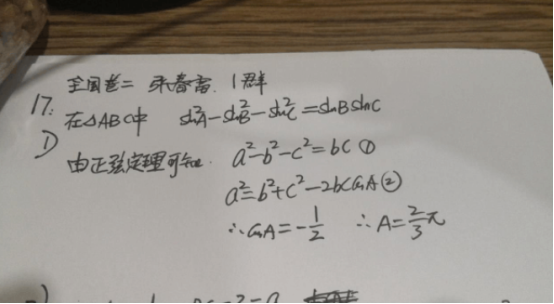 全国卷二 1群
17.
在△ABC中 sin²A-sin²B-sin²C=sinBsinC
1) 由正弦定理可知. a²-b²-c²=bc ①
a²=b²+c²-2bccosA ②
∴cosA=-1/2 ∴A=2/3π